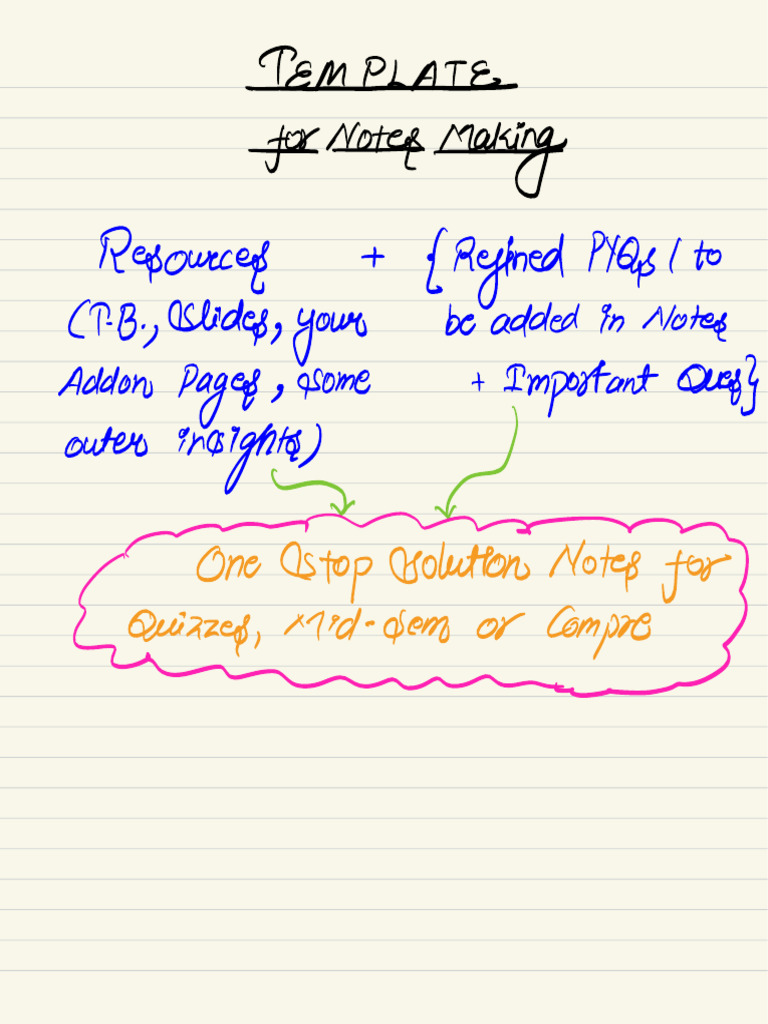 TEMPLATE
for Notes Making
Resources + {Refined PYQs / to
(T.B., Slides, your be added in Notes
Addon Pages, some + Important Ques}
outer insights)
One Stop Solution Notes for
Quizzes, Mid-Sem or Compre